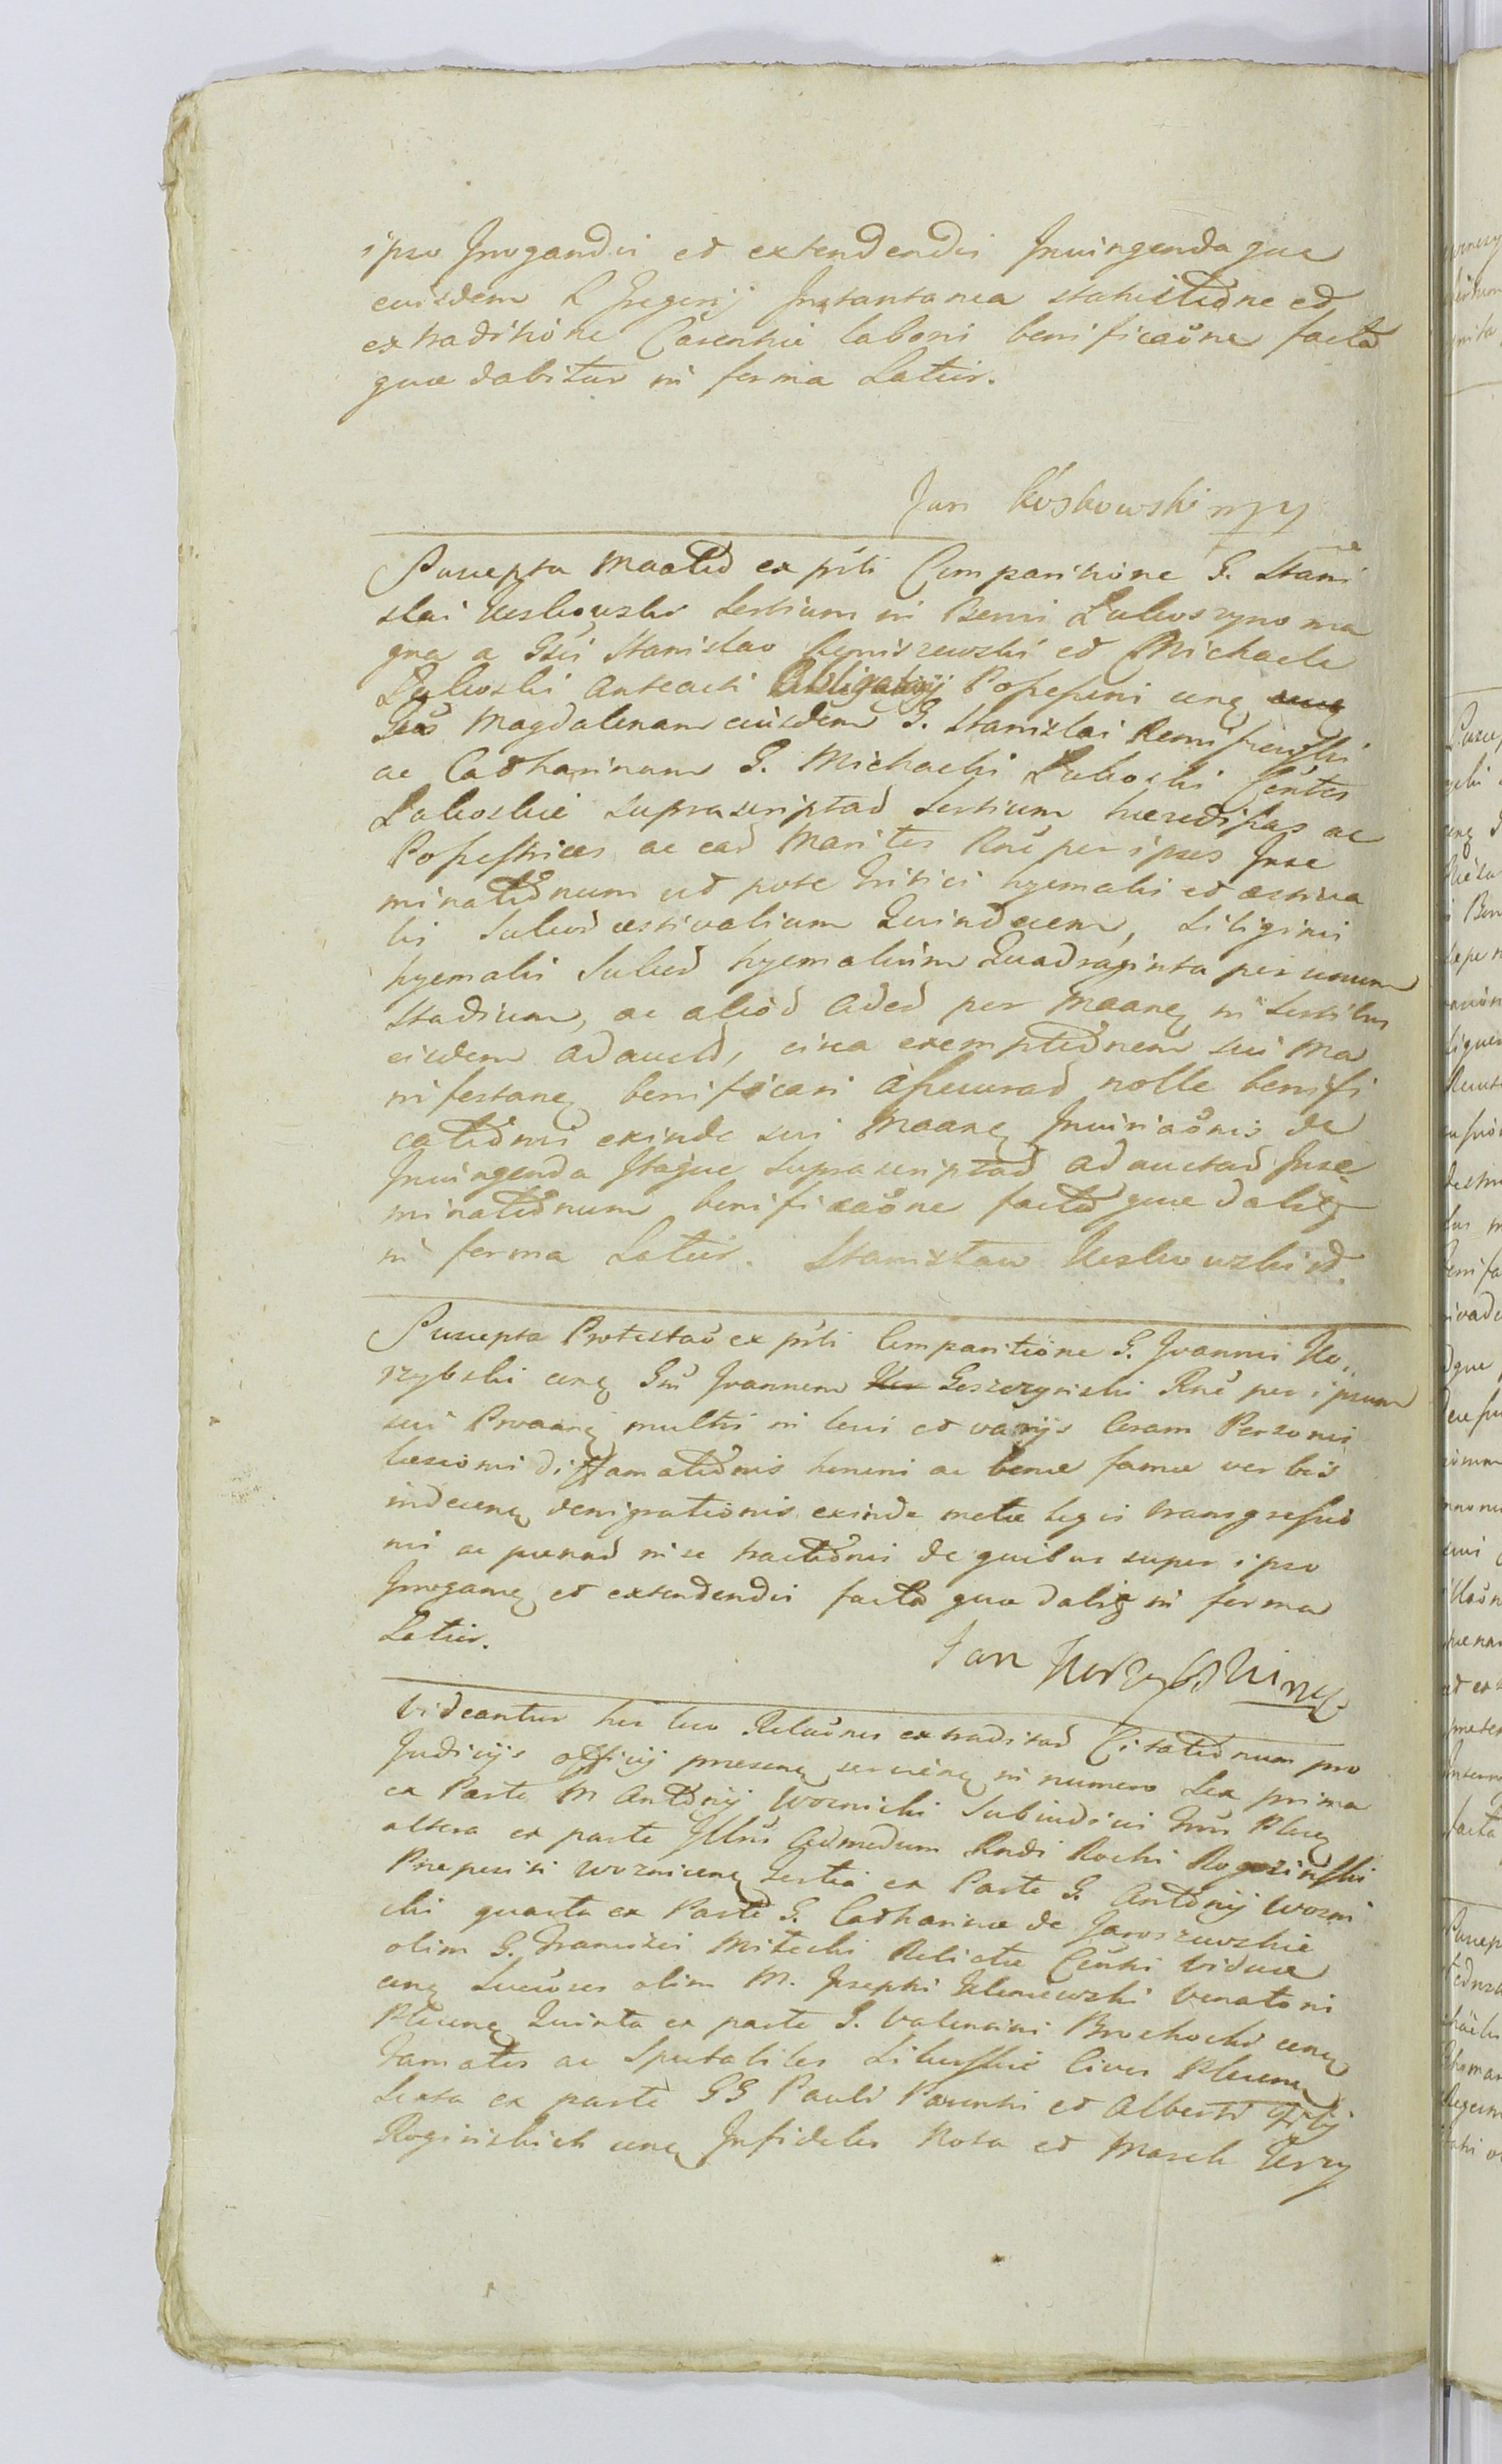 ipso Jrrogandis et extendendis Jniungenda que
eiusdem L Gregorij Jnstantanea statuitione et
extraditione Parentis laboris benificaone facta
quae dabitur in forma Latius.
Jan Koskowski mpp
Suscepta Maatio ex psti Comparitione G. Stani
slai Uskowski Sortium in Bonis Lukoszyno ma
gna a Gsis Stanislao Remiszewski et Michaele
Lukoski anteacti Obligatorij Possessoris cong
Gsas Magdalenam eiusdem G. Stanislai Remiszewski
ac Catharinam G. Michaelis Lukoski Cöntes
Lukoskie suprascriptar Sortium haereditas ac
Possestrices ac ear Maritos Rne per ipsos Jnse
minationum ut pote tritici hyemalis et aestiva
lis Sulcor aestivalium Quindecem, Siliginis
hyemalis Sulcor hyemalium Quadraginta per unum
Stadium, ac alior ader per Maang in Sortibus
eisdem adauctor, circa exemptionem sui Ma
nifestang benificari assecurat nolle benifi
cationis exinde sui Maang Jniuriaonis de
Jniungenda Jtaque suprascriptar adauctar Jnse
minationum benificaone factio quae dabit
in forma Latius. Stanisław Uskowski
Suscepta Protestao ex psti Comparitione G. Joannis Ko
rzybski cong Gsu Joannem Goszczynski Rne per ipsum
sui Proaang multis in locis et varijs Coram Personis
laesionis diffamationis honoris ac bonae famae verbis
indeceng denigrationis exinde metae legis transgressio
nis ac poenar in se tractionis de quibus super ipso
Jrrogang et extendendis facta quae dabit in forma
Latius.
Jan Korzybski mp
Videantur hic loco Relaones extraditar Citationum pro
Judicijs officij praeseng servieng in numero Sex prima
ex Parte M Antonij Woznicki Subiudicis Trris Płoceng
altera ex parte Jllris Admodum Rndi Rochi Rogozinski
Praepositi Wozniceng tertia ex Parte G. Antonij Wozni
cki quarta ex Parte G. Catharinae de Jaroszewskie
olim G. Francisci Mitecki Relictae Cönsti Viduae
cong Succores olim M. Josephi Kleniewski Venatoris
Płoceng Quinta ex parte G. Valentini Brochocki cong
Famatos ac Spectabiles Cives Płoceng
Sexta ex parte GG Pauli Parentis et Alberti filij
Roginskich cong Jnfideles Nota et Mosek Herzy